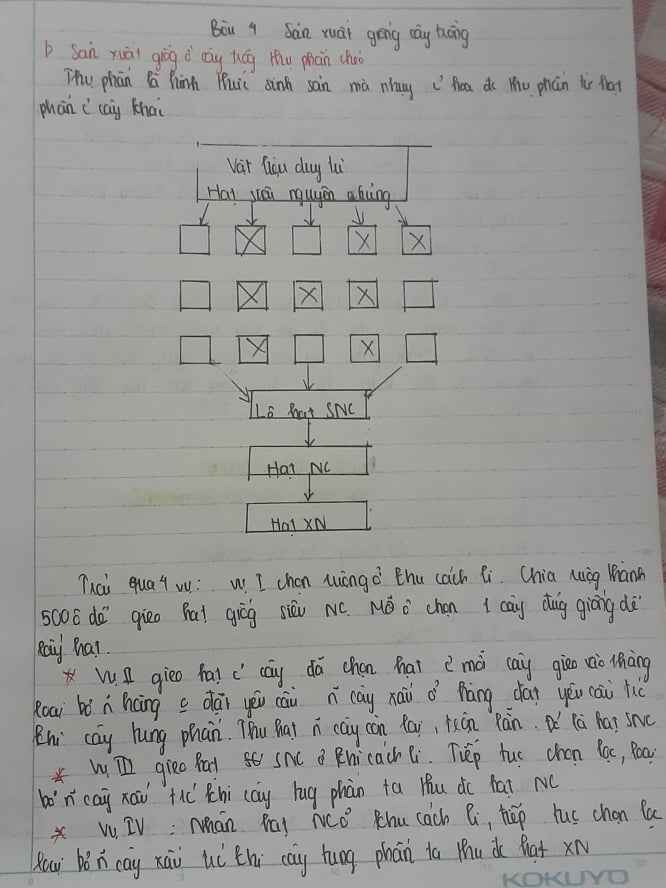 Bài 4 Sản xuất giống cây trồng
b Sản xuất giốg ở cây trồg thụ phấn chéo
Thụ phấn là hình thức sinh sản mà nhuỵ c' hoa đc thụ phấn từ hạt
phấn c' cây khác
Vật liệu duy trì
Hạt nguyên chủng
Lô hạt SNC
Hạt NC
Hạt XN
Trải qua 4 vụ: vụ I chọn ruộng ở khu cách li. Chia ruộg thành
500ô để gieo hạt giốg siêu NC. Mỗ ô chọn 1 cây đúg giống để
lấy hạt.
* Vụ II gieo hạt c' cây đã chọn hạt c' mỗi cây gieo vào thàng
loại bỏ n~ hàng đạt yêu cầu n~ cây xấu ở hàng đạt yêu cầu tr'c
khi cây tung phấn. Thu hạt n~ cây còn lại, trộn lẫn. Đó là hạt SNC
* Vụ III gieo hạt SNC ở khi cách li. Tiếp tục chọn lọc, loại
bỏ n~ cây xấu tr'c khi cây tug phấn ta thu đc hạt NC
* Vụ IV : Nhân hạt NC ở khu cách li, tiếp tục chọn lọc
loại bỏ n~ cây xấu tr'c khi cây tung phấn ta thu đc hạt XN
KOKUYO